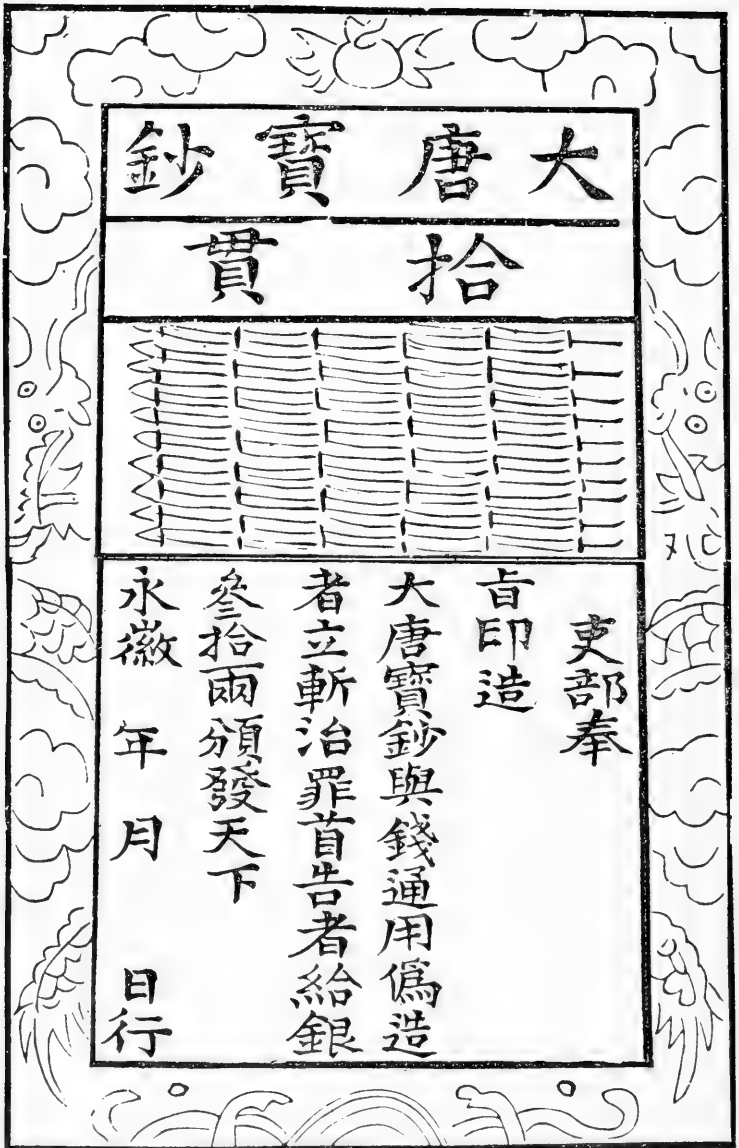 大唐寶鈔
拾貫
吏部奉
旨印造
大唐寶鈔與錢通用僞造
者立斬治罪首告者給銀
叅拾兩頒發天下
永徽 年 月 日行